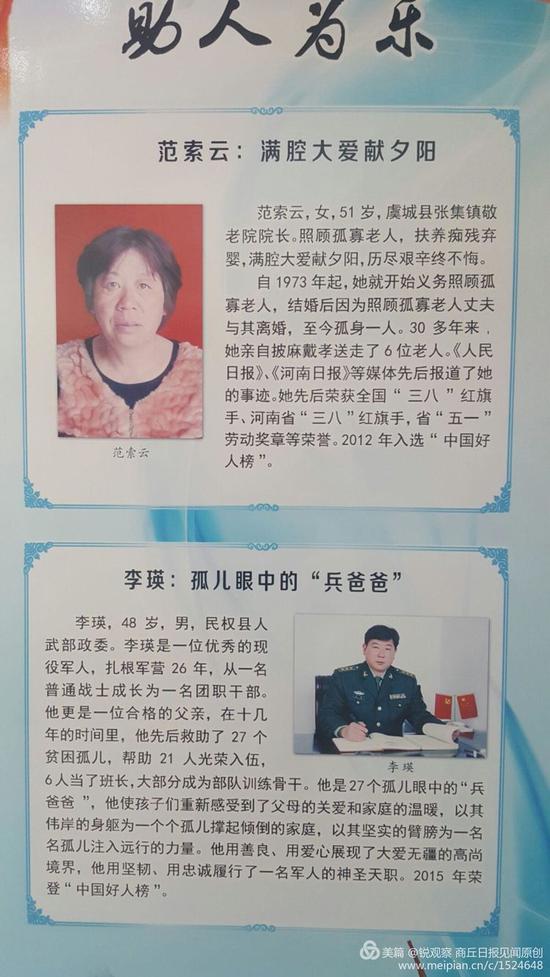 助人为乐
范索云：满腔大爱献夕阳
范索云，女，51 岁，虞城县张集镇敬
老院院长。照顾孤寡老人，扶养痴残弃
婴，满腔大爱献夕阳，历尽艰辛终不悔。
自 1973 年起，她就开始义务照顾孤
寡老人，结婚后因为照顾孤寡老人丈夫
与其离婚，至今孤身一人。30 多年来，
她亲自披麻戴孝送走了 6 位老人。《人民
日报》、《河南日报》等媒体先后报道了她
的事迹。她先后荣获全国“ 三八 ”红旗
手、河南省“三八”红旗手，省“五一”
劳动奖章等荣誉。2012 年入选“ 中国好
人榜 ”。
范索云
李瑛：孤儿眼中的“兵爸爸”
李瑛，48 岁，男，民权县人
武部政委。李瑛是一位优秀的现
役军人，扎根军营 26 年，从一名
普通战士成长为一名团职干部。
他更是一位合格的父亲，在十几
年的时间里，他先后救助了 27 个
贫困孤儿，帮助 21 人光荣入伍，
6 人当了班长，大部分成为部队训练骨干。他是27个孤儿眼中的“兵
爸爸 ”，他使孩子们重新感受到了父母的关爱和家庭的温暖，以其
伟岸的身躯为一个个孤儿撑起倾倒的家庭，以其坚实的臂膀为一名
名孤儿注入远行的力量。他用善良、用爱心展现了大爱无疆的高尚
境界，他用坚韧、用忠诚履行了一名军人的神圣天职。2015 年荣
登“ 中国好人榜 ”。
李 瑛
美篇 @锐观察 商丘日报见闻原创
www.meipian.cn/c/1524648